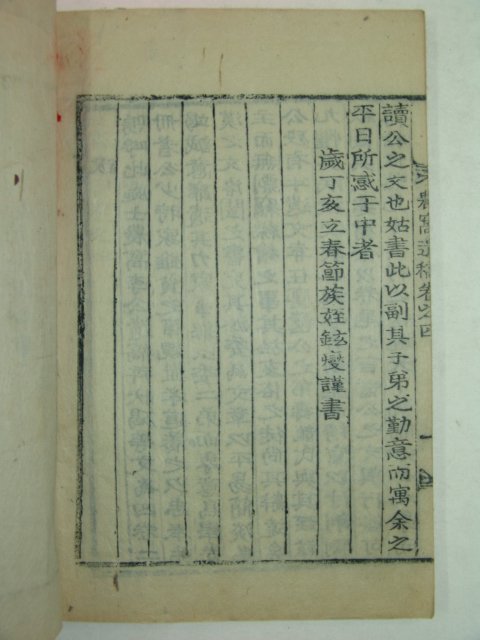 農窩遺稿卷之四
讀公之文也姑書此以副其子弟之勤意而寓余之
平日所感于中者
歲丁亥立春節族姪鉉燮謹書